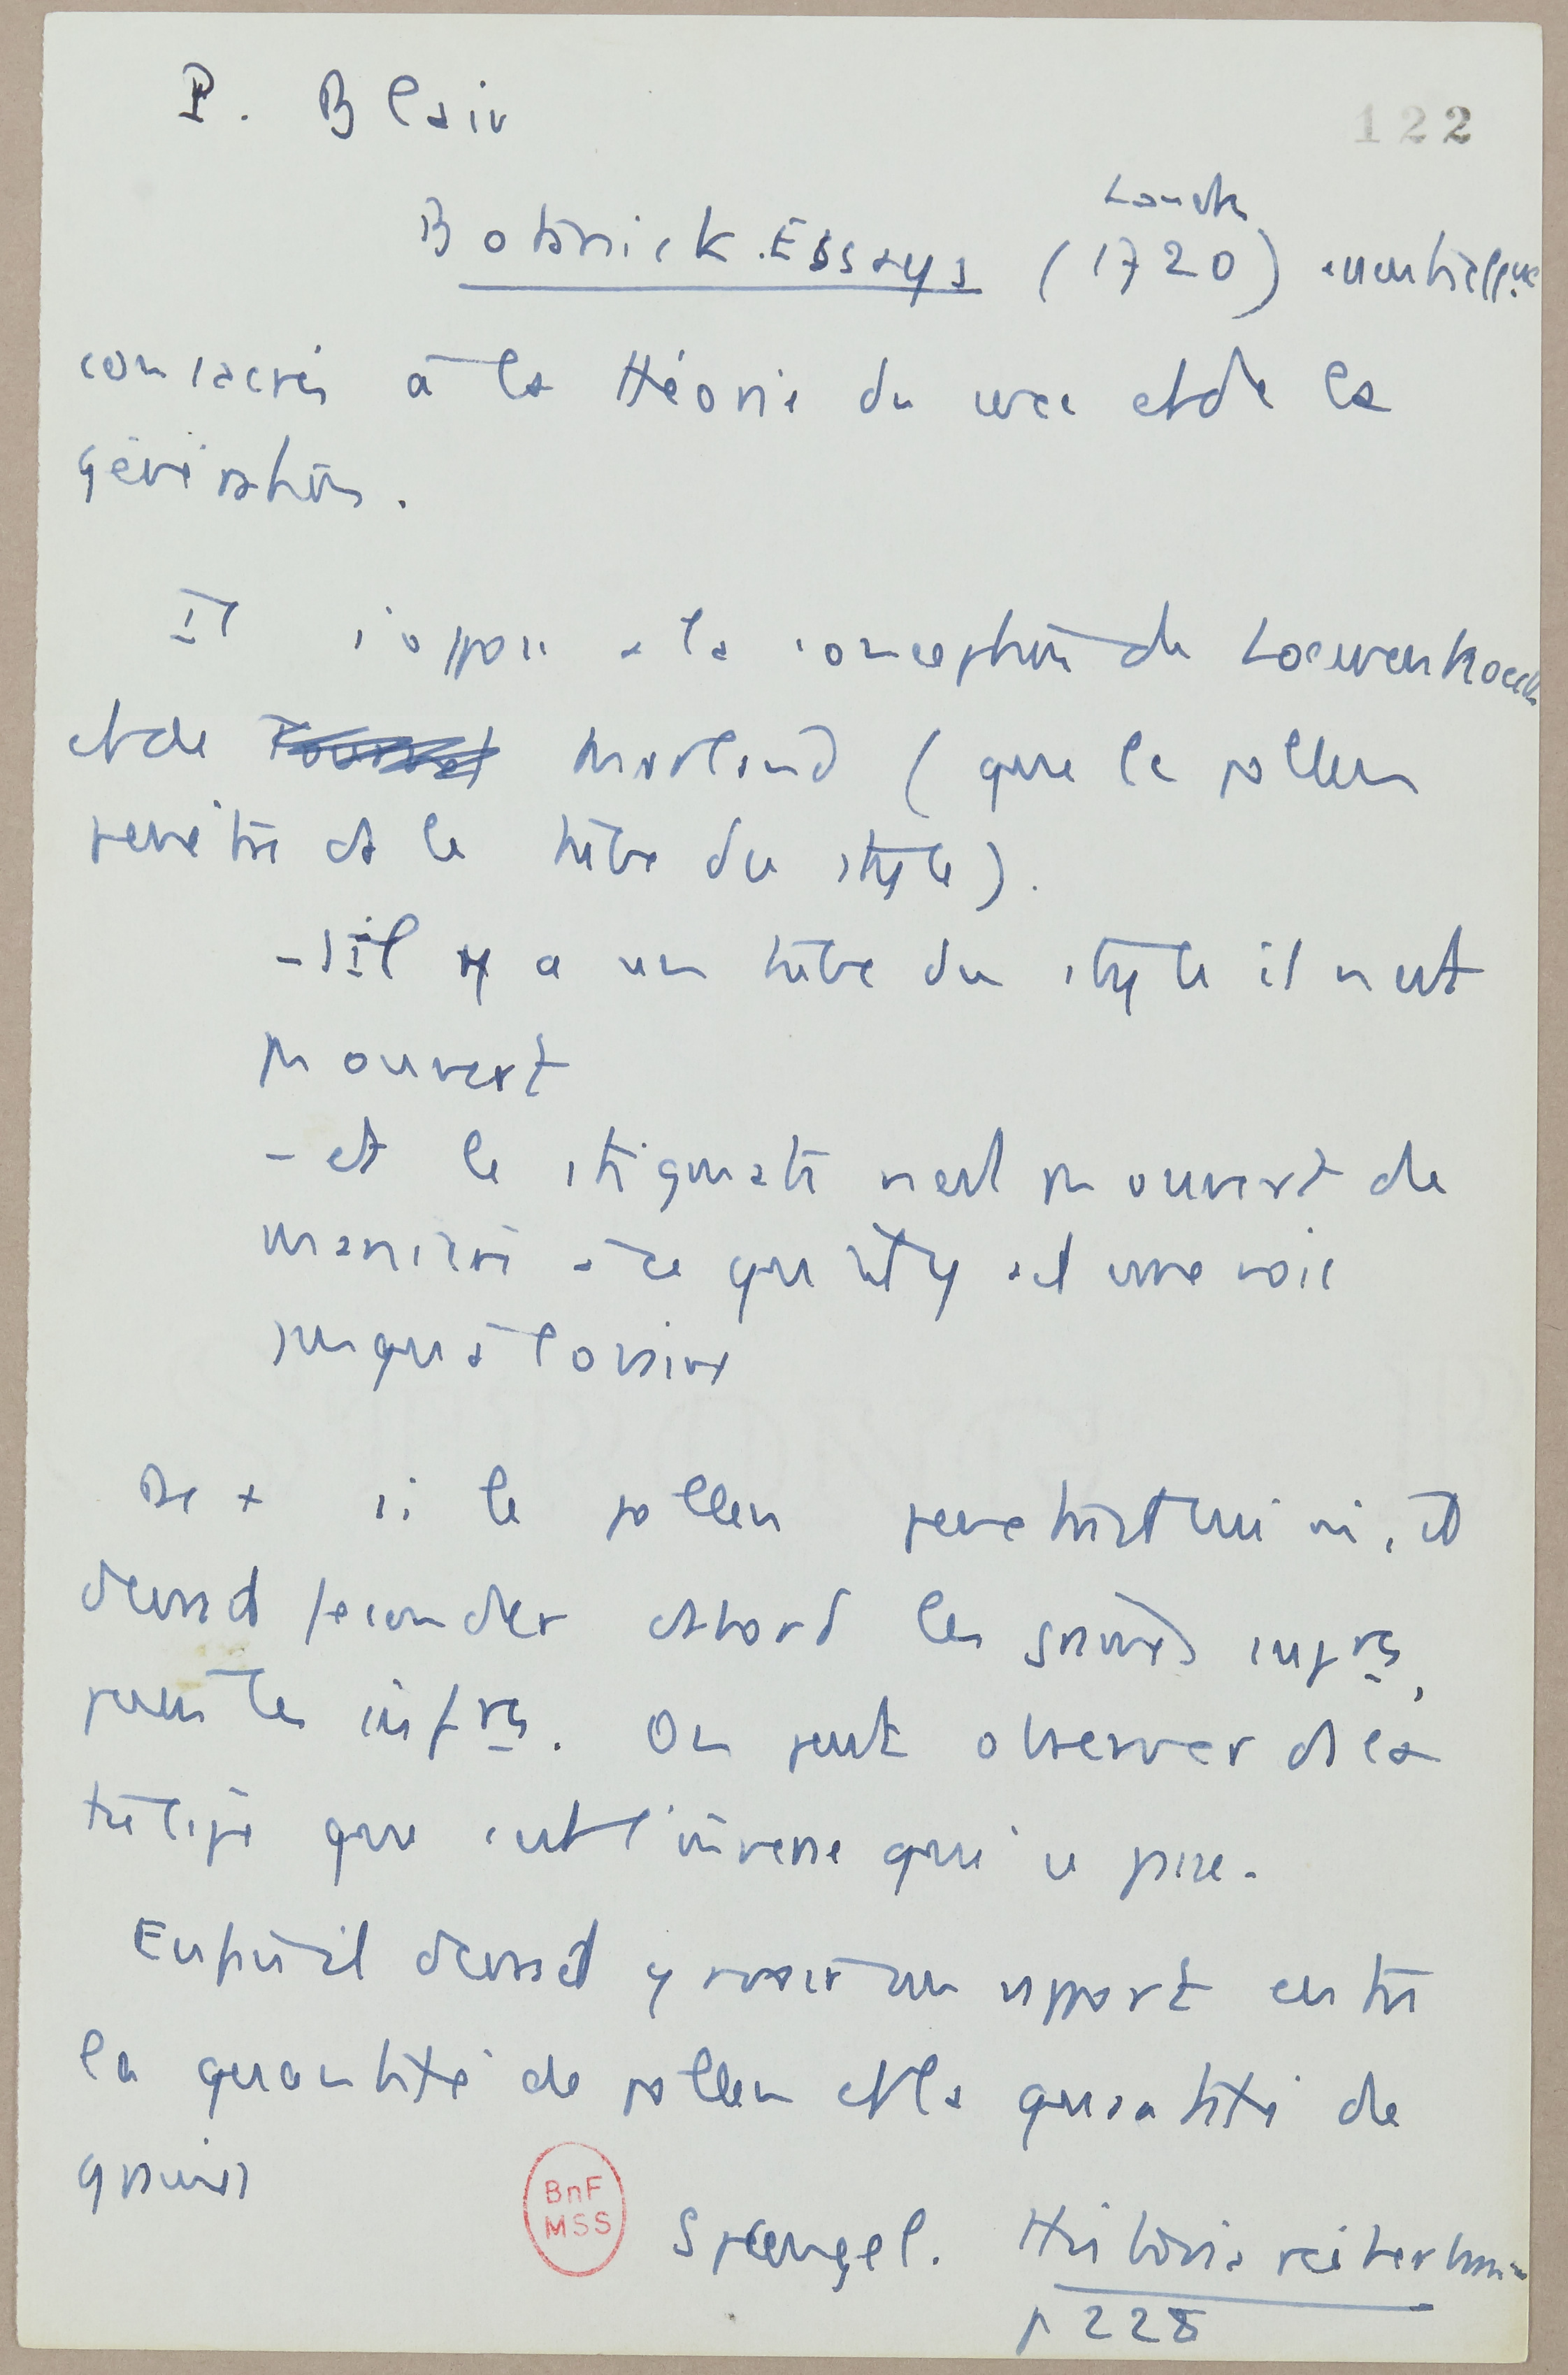 P. Blair
122
Londres
Botanick Essays (1720) essentiellement
consacrés à la théorie du sexe et de la
génération.
Il s'oppose à la conception de Loewenhoeck
et de Morland (que le pollen
pénètre ds le tube du style).
- S'il y a un tube du style il n'est
pas ouvert
- et le stigmate n'est pas ouvert de
manière à ce qu'il y ait une voie
jusqu'à l'ovaire
De + si le pollen pénétrait lui-même, il
devrait féconder d'abord les graines supres,
puis les infres. On peut observer ds la
tulipe que c'est l'inverse qui se passe.
Enfin il devrait y avoir un rapport entre
la quantité de pollen et la quantité de
graines
BnF
MSS
Sprengel. Historia rei herbariae
p 228